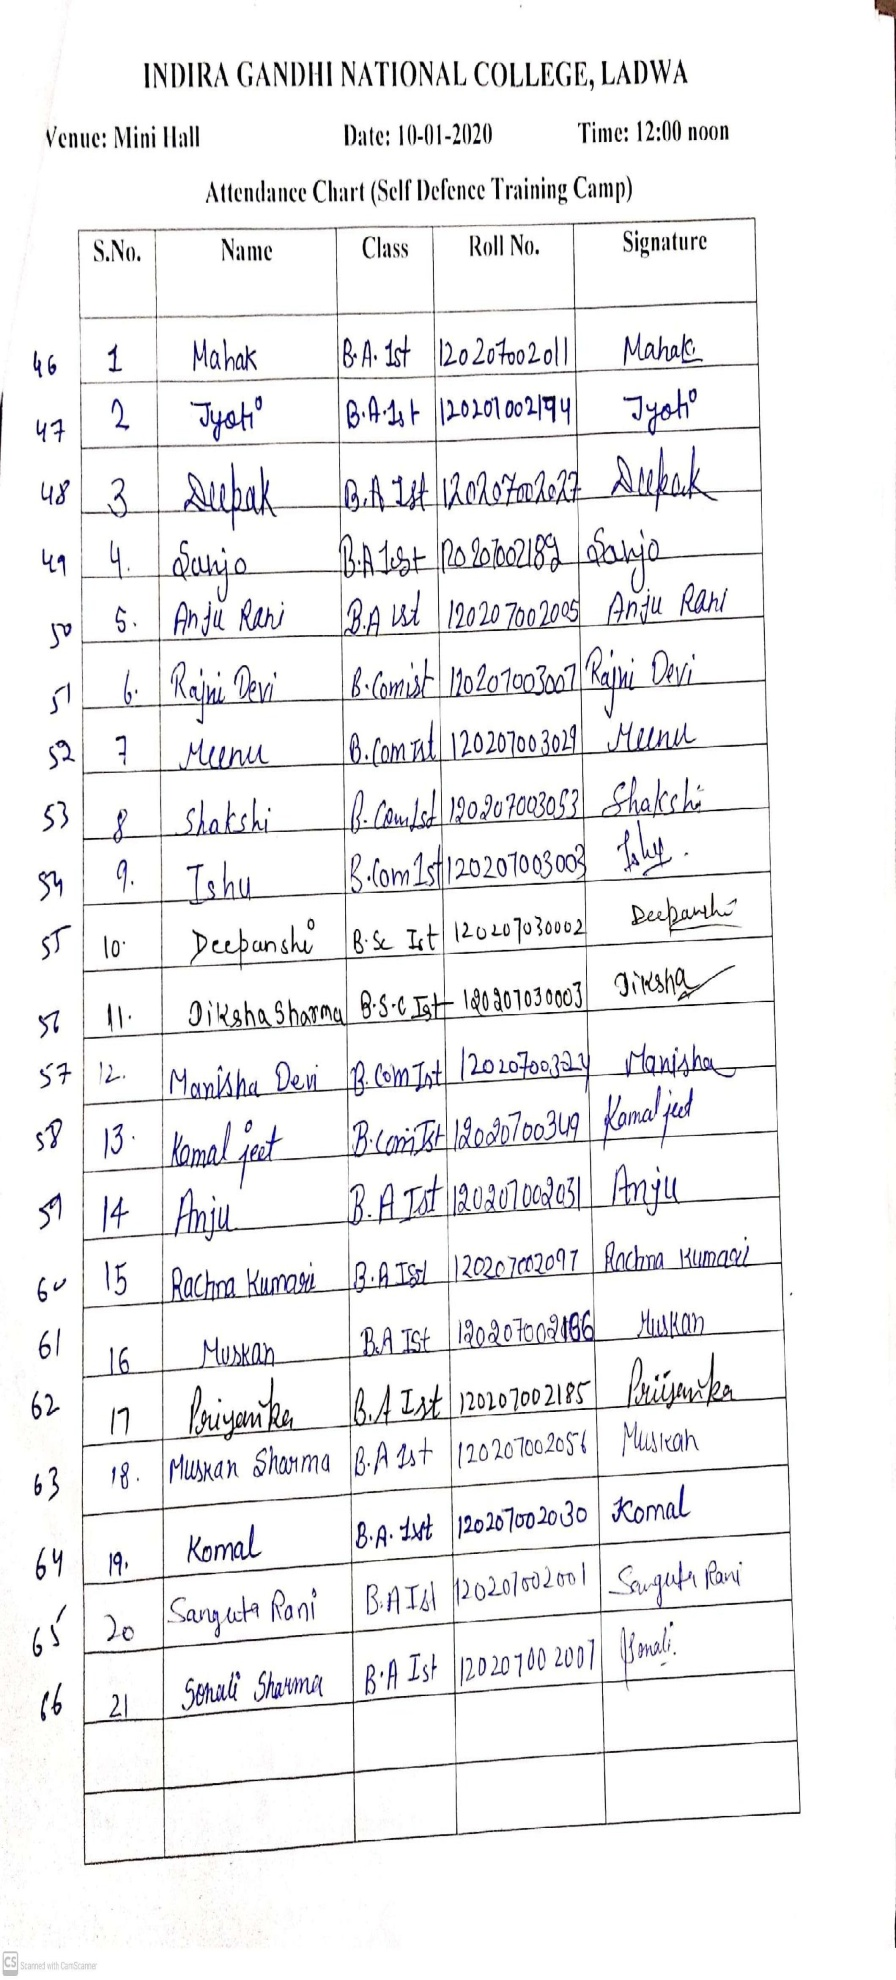 INDIRA GANDHI NATIONAL COLLEGE, LADWA
Venue: Mini Hall Date: 10-01-2020 Time: 12:00 noon
Attendance Chart (Self Defence Training Camp)
S.No. Name Class Roll No. Signature
46 1 Mahak B.A. 1st 120207002011 Mahak
47 2 Jyoti B.A.1st 120207002194 Jyoti
48 3 Deepak B.A Ist 120207002027 Deepak
49 4. Sanjo B.A Ist 120207002189 Sanjo
50 5. Anju Rani B.A Ist 120207002005 Anju Rani
51 6. Rajni Devi B.Com Ist 120207003007 Rajni Devi
52 7 Meenu B.Com Ist 120207003029 Meenu
53 8 Shakshi B.Com Ist 120207003053 Shakshi
54 9. Ishu B.Com 1st 120207003003 Ishu.
55 10. Deepanshi B.Sc Ist 120207030002 Deepanshi
56 11. Diksha Sharma B.S.C Ist 120207030003 Diksha
57 12. Manisha Devi B.Com Ist Manisha
58 13. Kamal jeet B.Com Ist 12020700349 Kamal jeet
59 14 Anju B.A Ist 120207002031 Anju
60 15 Rachna Kumari B.A Ist 120207002097 Rachna Kumari
61 16 Muskan B.A Ist Muskan
62 17 Priyanka B.A Ist 120207002185 Priyanka
63 18. Muskan Sharma B.A 1st 120207002056 Muskan
64 19. Komal B.A. 1st 120207002030 Komal
65 20 Sangeeta Rani B.A Ist 120207002001 Sangeeta Rani
66 21 Sonali Sharma B.A Ist 120207002007 Sonali.
CS Scanned with CamScanner